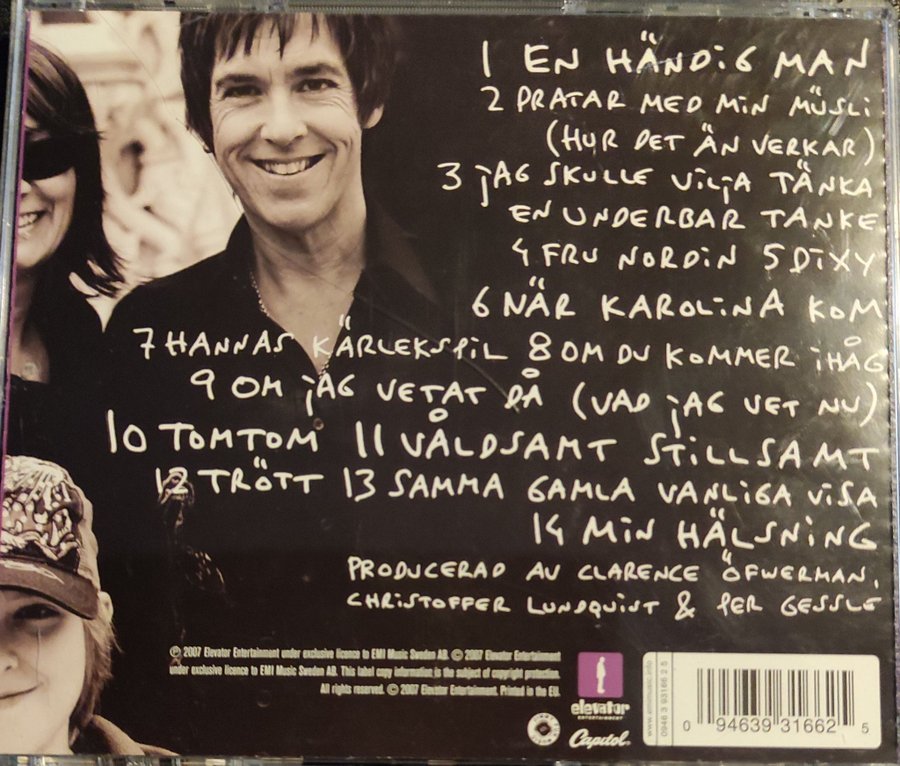 1 EN HÄNDiG MAN
2 PRATAR MED MiN MÜSLi
(HUR DET ÄN VERKAR)
3 jAG SKULLE ViLjA TÄNKA
EN UNDERBAR TANKE
4 FRU NORDiN 5 DiXY
6 NÄR KAROLiNA KOM
7 HANNAS KÄRLEKSPIL 8 OM DU KOMMER iHÅG
9 OM jAG VETAT DÅ (VAD jAG VET NU)
10 TOMTOM 11 VÅLDSAMT STiLLSAMT
12 TRÖTT 13 SAMMA GAMLA VANLiGA ViSA
14 MiN HÄLSNiNG
PRODUCERAD AV CLARENCE ÖFWERMAN,
CHRiSTOFFER LUNDQUiST & PER GESSLE
℗ 2007 Elevator Entertainment under exclusive licence to EMI Music Sweden AB. © 2007 Elevator Entertainment
under exclusive licence to EMI Music Sweden AB. This label copy information is the subject of copyright protection.
All rights reserved. © 2007 Elevator Entertainment. Printed in the EU.
elevator
ENTERTAINMENT
Capitol
www.emimusic.info
0946 3 93166 2 5
0 94639 31662 5